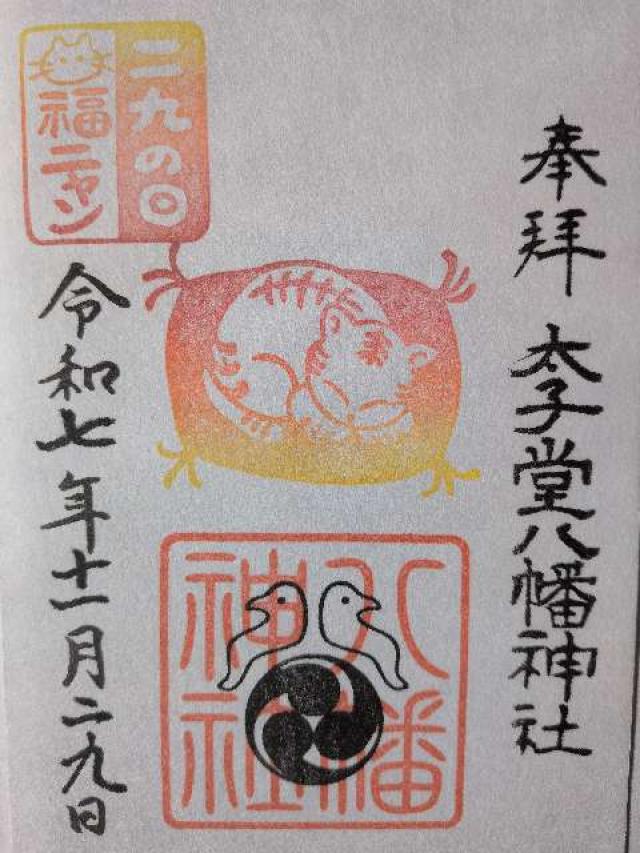 奉拝 太子堂八幡神社
二九の日
福ニャン
八幡
神社
令和七年十一月二九日